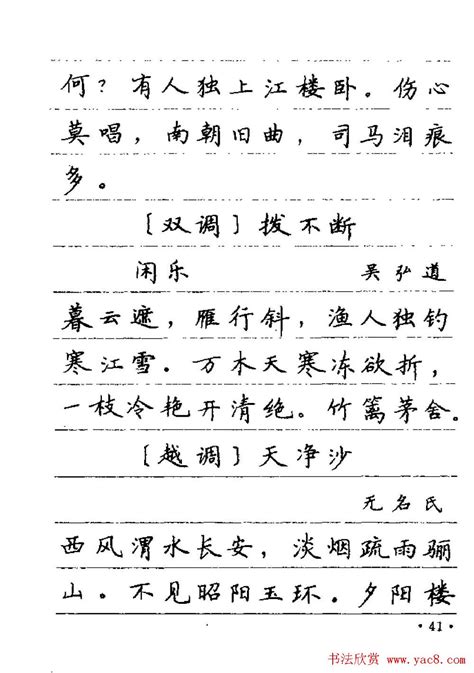 何？有人独上江楼卧。伤心
莫唱，南朝旧曲，司马泪痕
多。
〔双调〕拨不断
闲乐 吴弘道
暮云遮，雁行斜，渔人独钓
寒江雪。万木天寒冻欲折，
一枝冷艳开清绝。竹篱茅舍。
〔越调〕天净沙
无名氏
西风渭水长安，淡烟疏雨骊
山。不见昭阳玉环。夕阳楼
·41·
书法欣赏 www.yac8.com